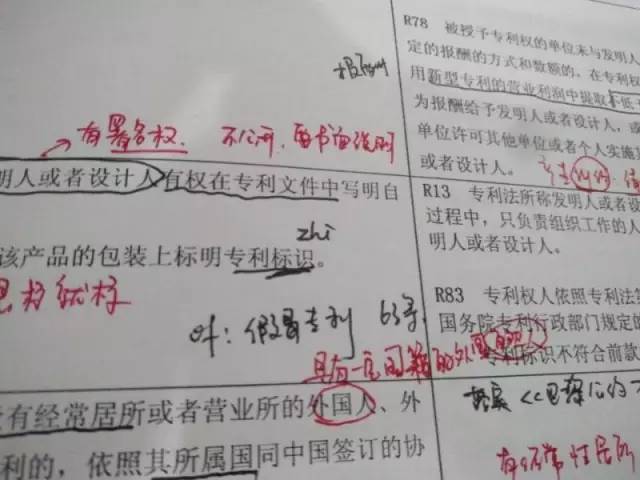 有署名权. 不公开,要书面说明
明人或者设计人有权在专利文件中写明自
zhi
该产品的包装上标明专利标识。
假冒专利 63条
具有一定国籍的外国人
有经常居所或者营业所的外国人、外
利的,依照其所属国同中国签订的协
R78 被授予专利权的单位未与发明人
定的报酬的方式和数额的,在专利权
用新型专利的营业利润中提取不低
为报酬给予发明人或者设计人,或
单位许可其他单位或者个人实施
或者设计人。
R13 专利法所称发明人或者设
过程中,只负责组织工作的人
明人或者设计人。
R83 专利权人依照专利法第
国务院专利行政部门规定的
专利标识不符合前款
有经常性居所